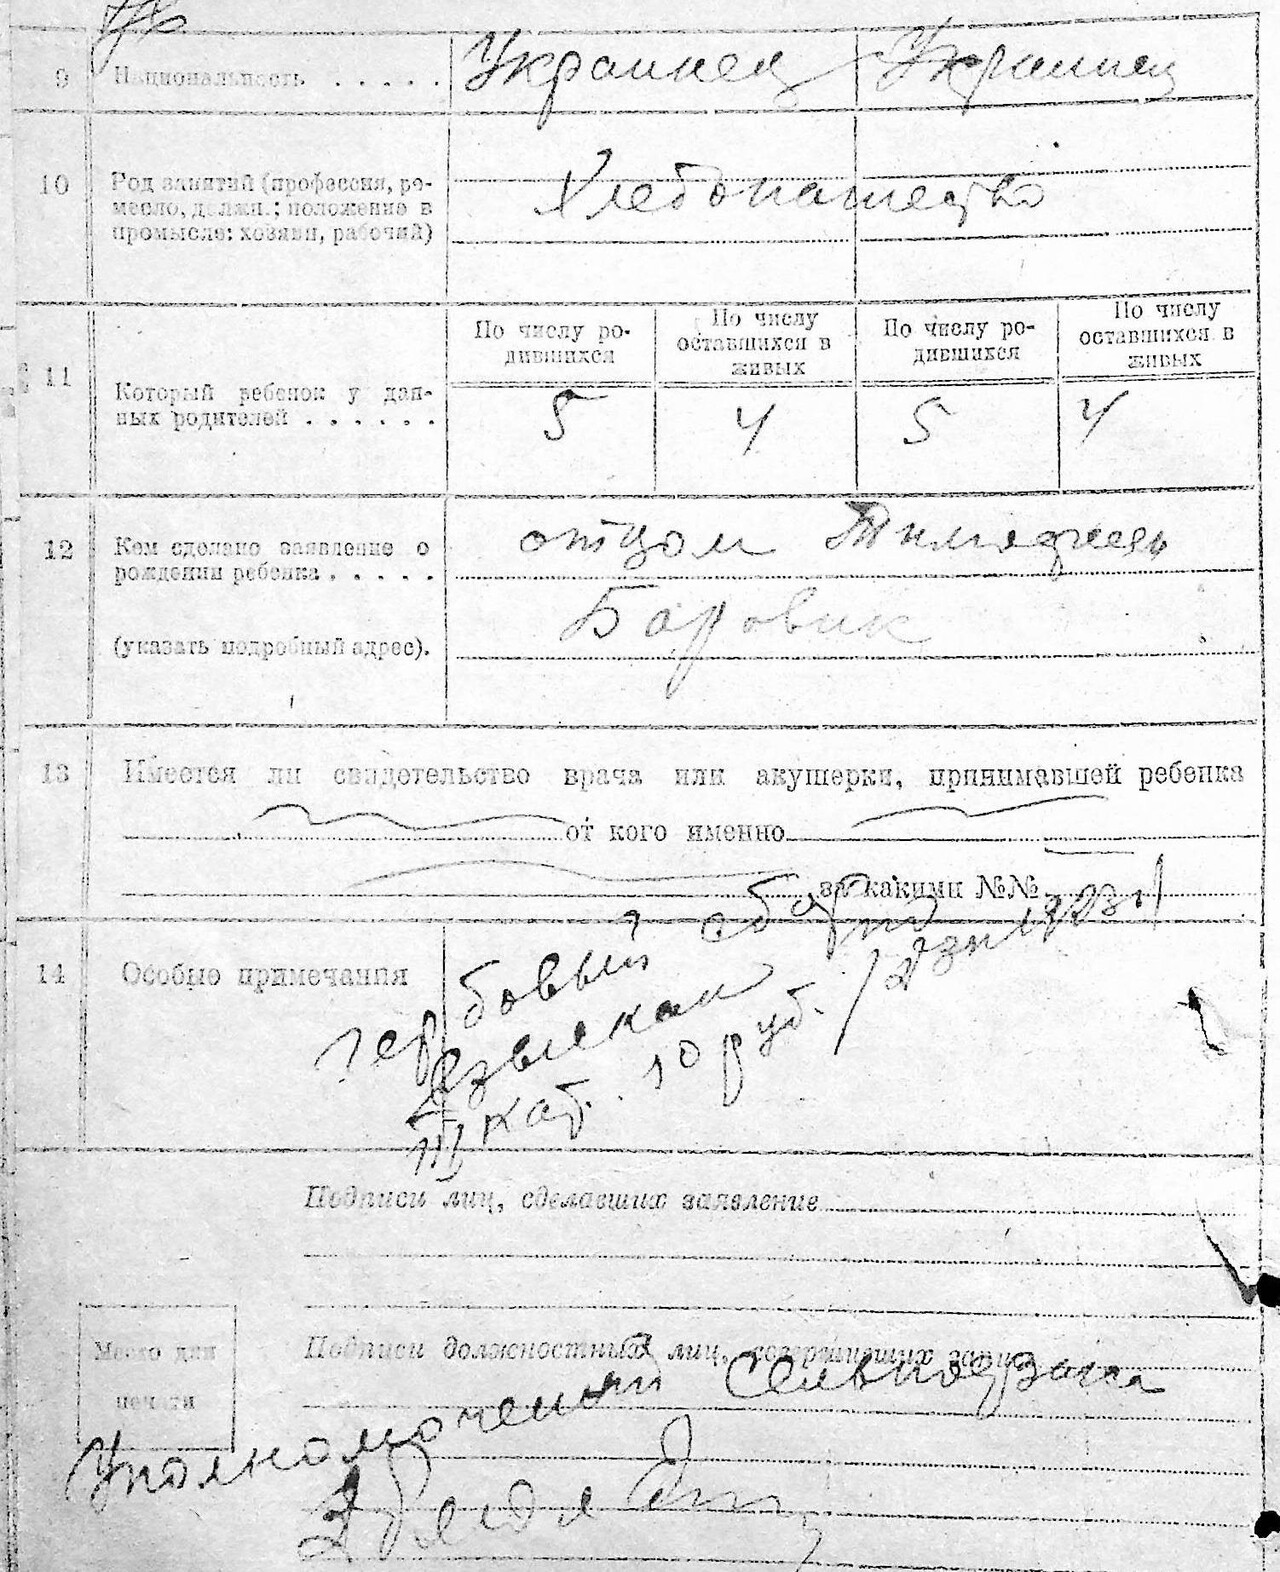 9 Национальность . . . . . Украинец Украинец
10 Род занятий (профессия, ре-
месло, должн.; положение в
промысле: хозяин, рабочий)
Хлебопашество
По числу ро-
дившихся
По числу
оставшихся в
живых
По числу ро-
дившихся
По числу
оставшихся в
живых
11 Который ребенок у дан-
ных родителей . . . . . .
5 4 5 4
12 Кем сделано заявление о
рождении ребенка . . . . .
(указать подробный адрес).
отцом
Боровик
13 Имеется ли свидетельство врача или акушерки, принимавшей ребенка
от кого именно
за какими №№
14 Особые примечания
гербовый сбор по
взыскан
III кат. 10 руб.
Подписи лиц, сделавших заявление
Место для
печати
Подписи должностных лиц, совершивших запись
Уполномоченый